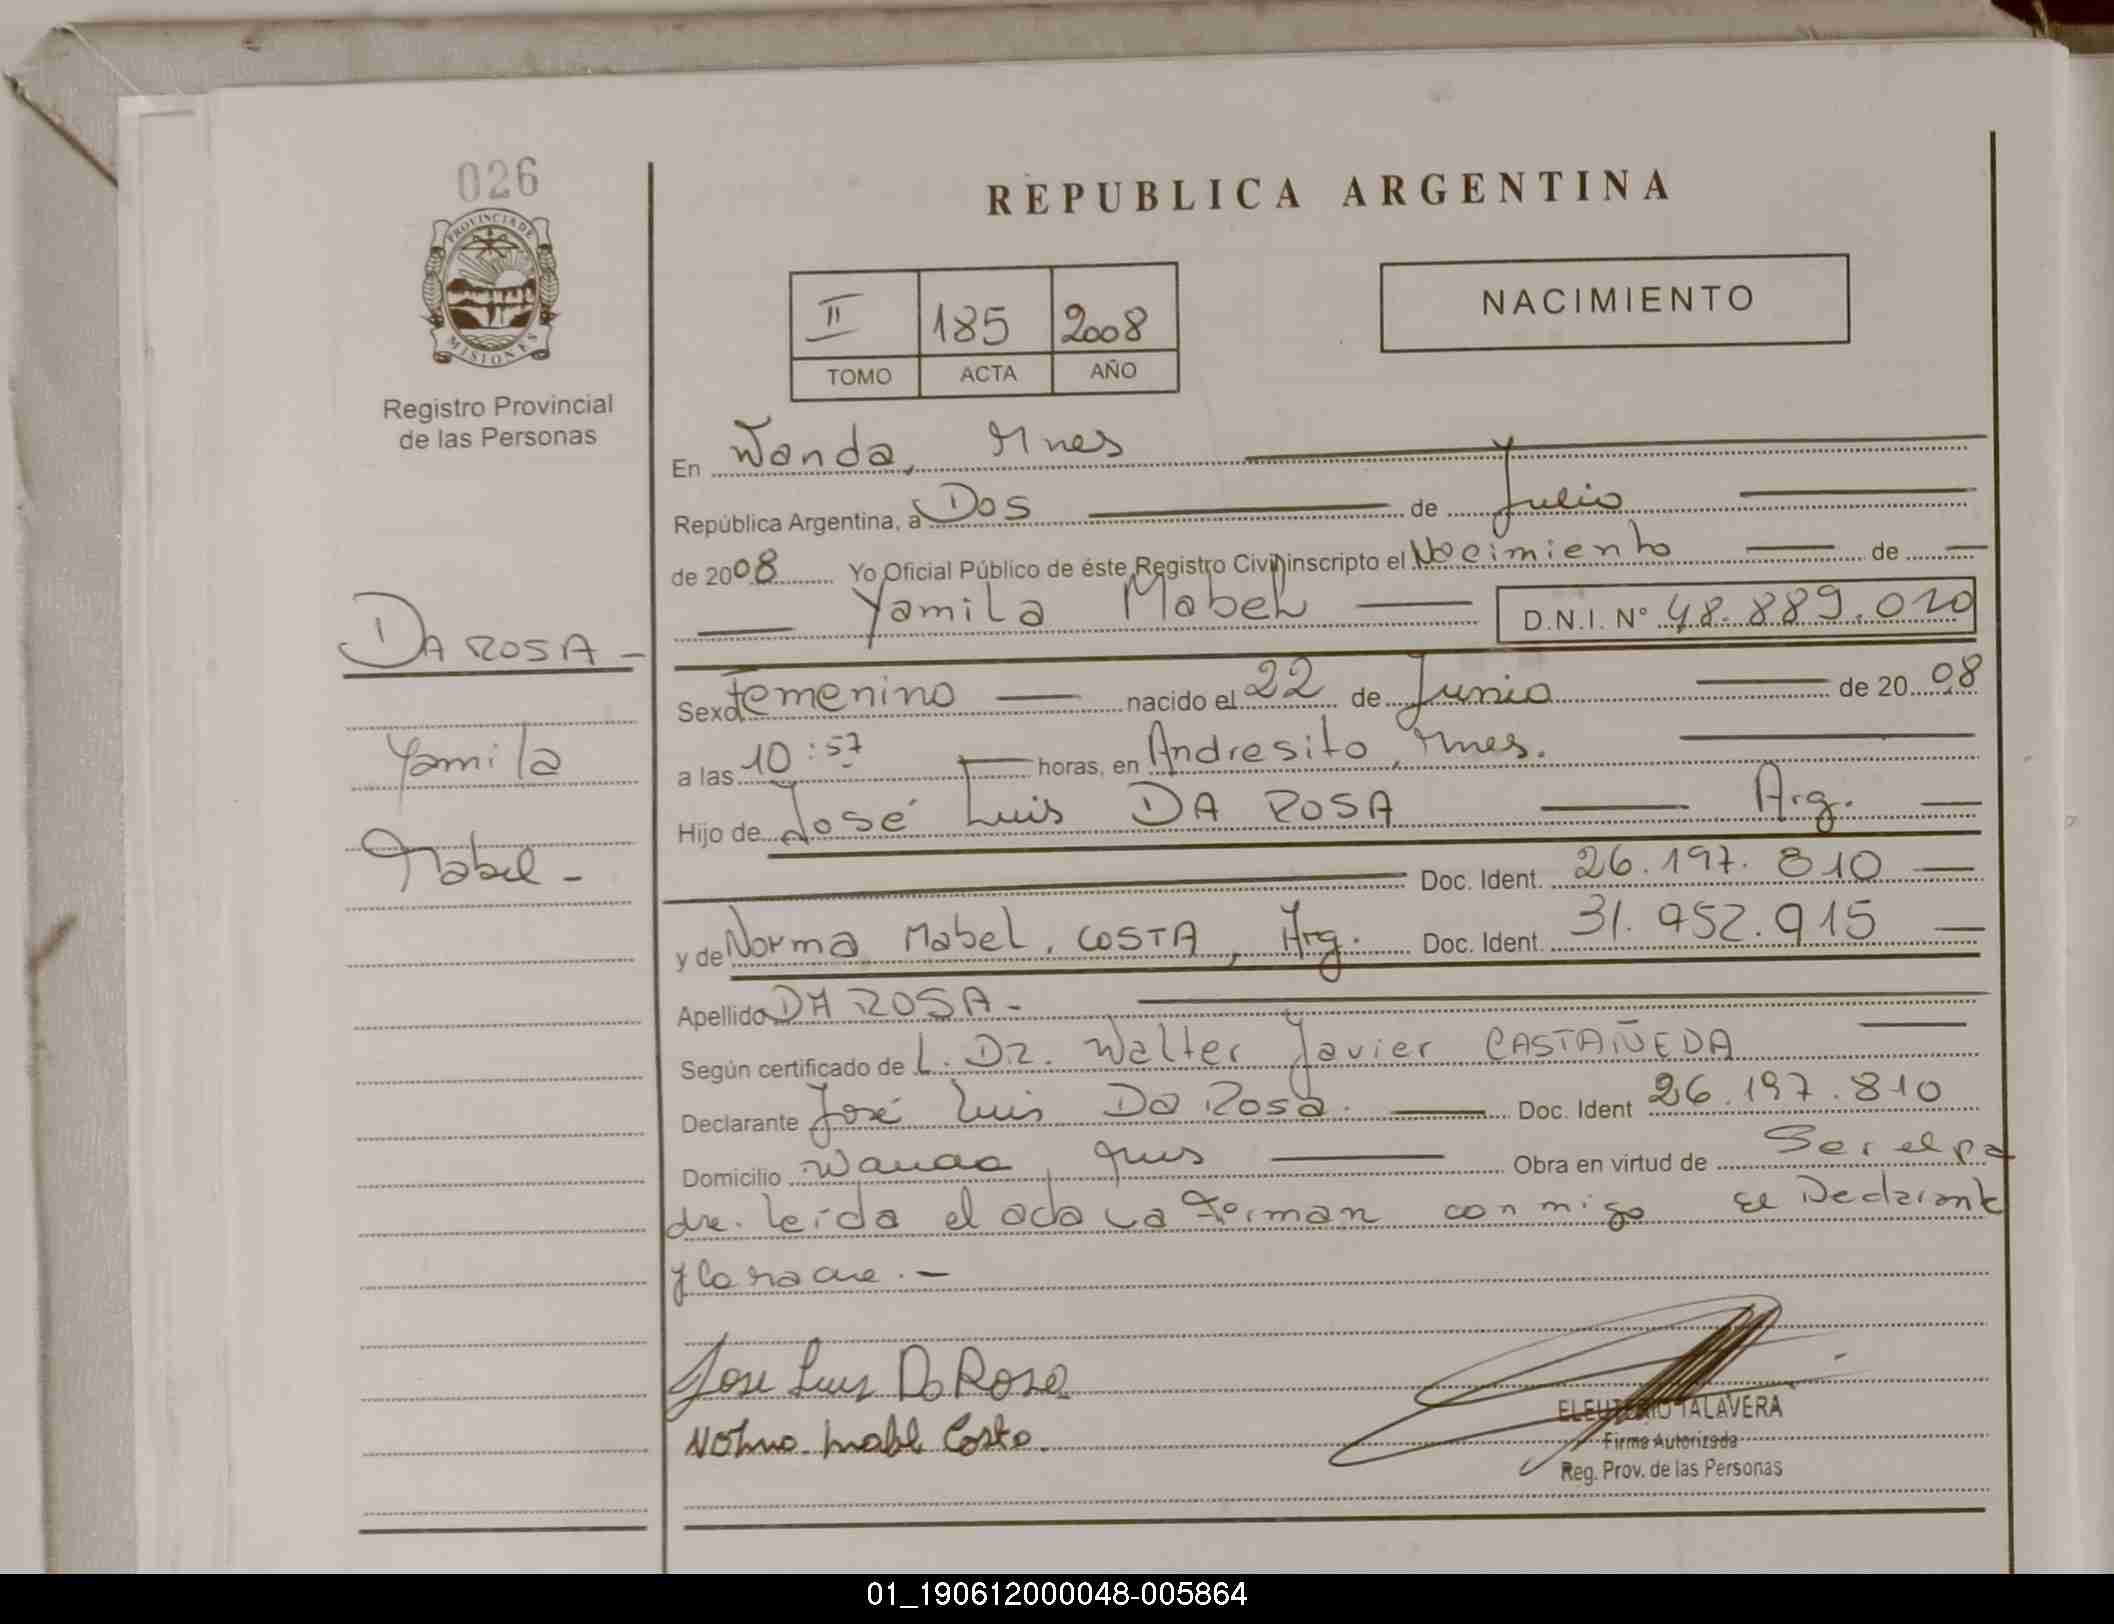 026
PROVINCIA DE
MISIONES
Registro Provincial
de las Personas
REPUBLICA ARGENTINA
II 185 2008
TOMO ACTA AÑO
NACIMIENTO
En Wanda, Mnes
República Argentina, a Dos de Julio
de 2008 Yo Oficial Público de éste Registro Civil inscripto el Nacimiento de
Yamila Mabel D.N.I. N° 48.889.010
DA ROSA -
Yamila
Mabel -
Sexo Femenino nacido el 22 de Junio de 2008
a las 10:57 horas, en Andresito, Mnes.
Hijo de José Luis DA ROSA Arg.
Doc. Ident. 26.197.810
y de Norma Mabel COSTA, Arg. Doc. Ident. 31.952.915
Apellido DA ROSA -
Según certificado de L. Dr. Walter Javier CASTAÑEDA
Declarante José Luis Da Rosa. Doc. Ident 26.197.810
Domicilio Wanda, Mnes Obra en virtud de Ser el pa
dre. Leída el acta la Firman conmigo el Declarante
y la madre. -
Jose Luis Da Rosa
Norma Mabel Costa.
ELEUTERIO TALAVERA
Firma Autorizada
Reg. Prov. de las Personas
01_190612000048-005864